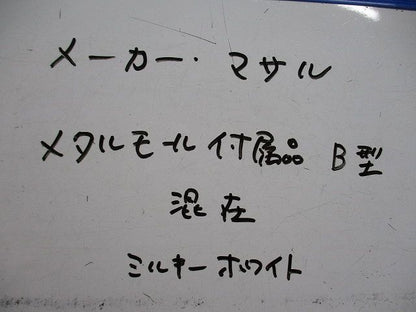 メーカー・マサル
メタルモール付属品 B型
混在
ミルキーホワイト